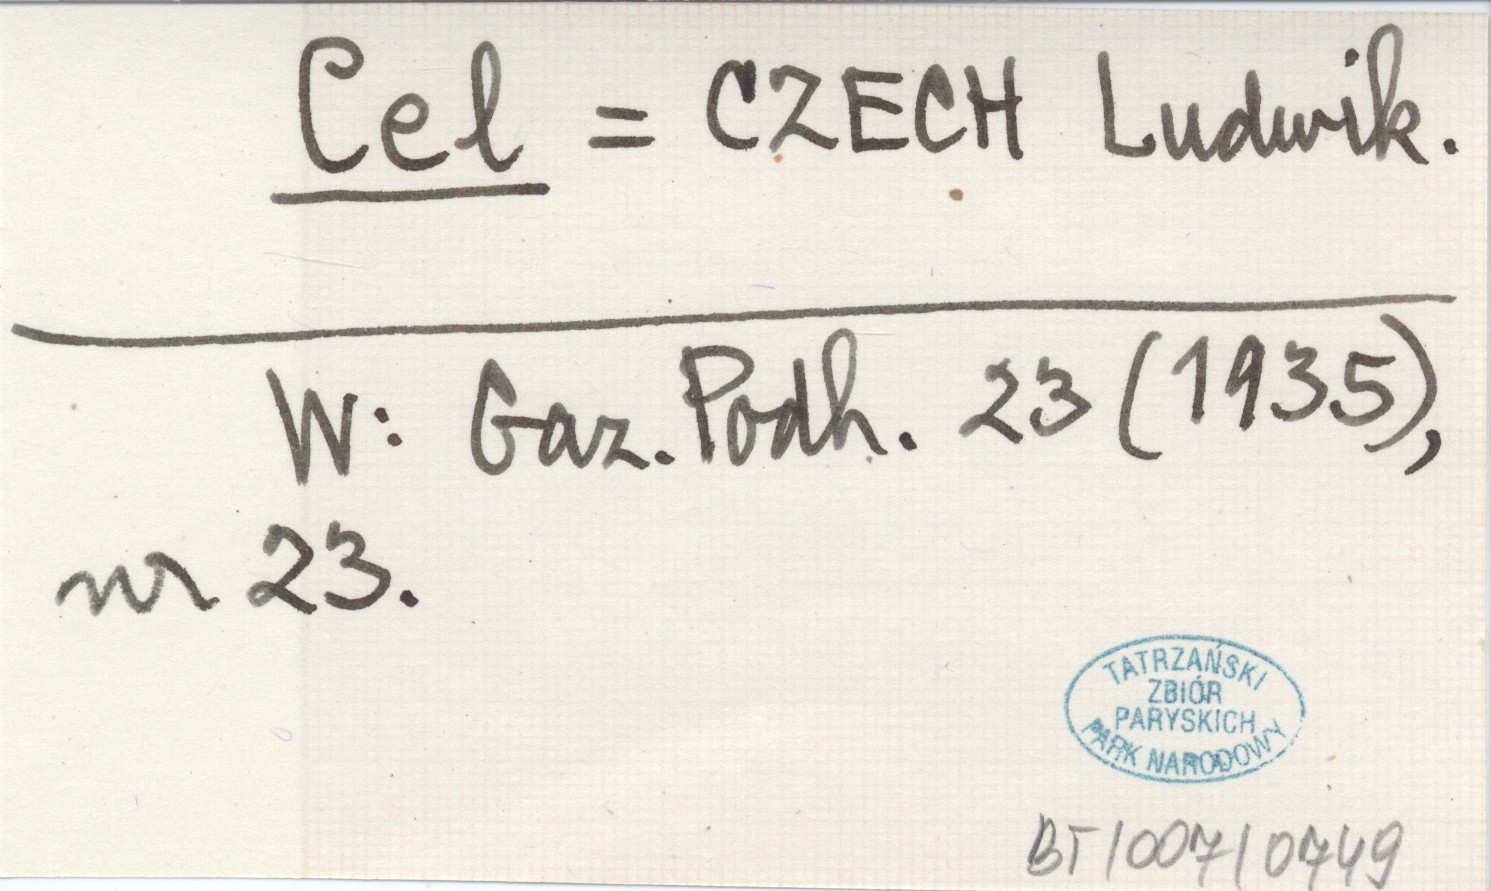 Cel = CZECH Ludwik.
W: Gaz. Podh. 23 (1935),
nr 23.
TATRZAŃSKI
ZBIÓR
PARYSKICH
PARK NARODOWY
BT/007/0749